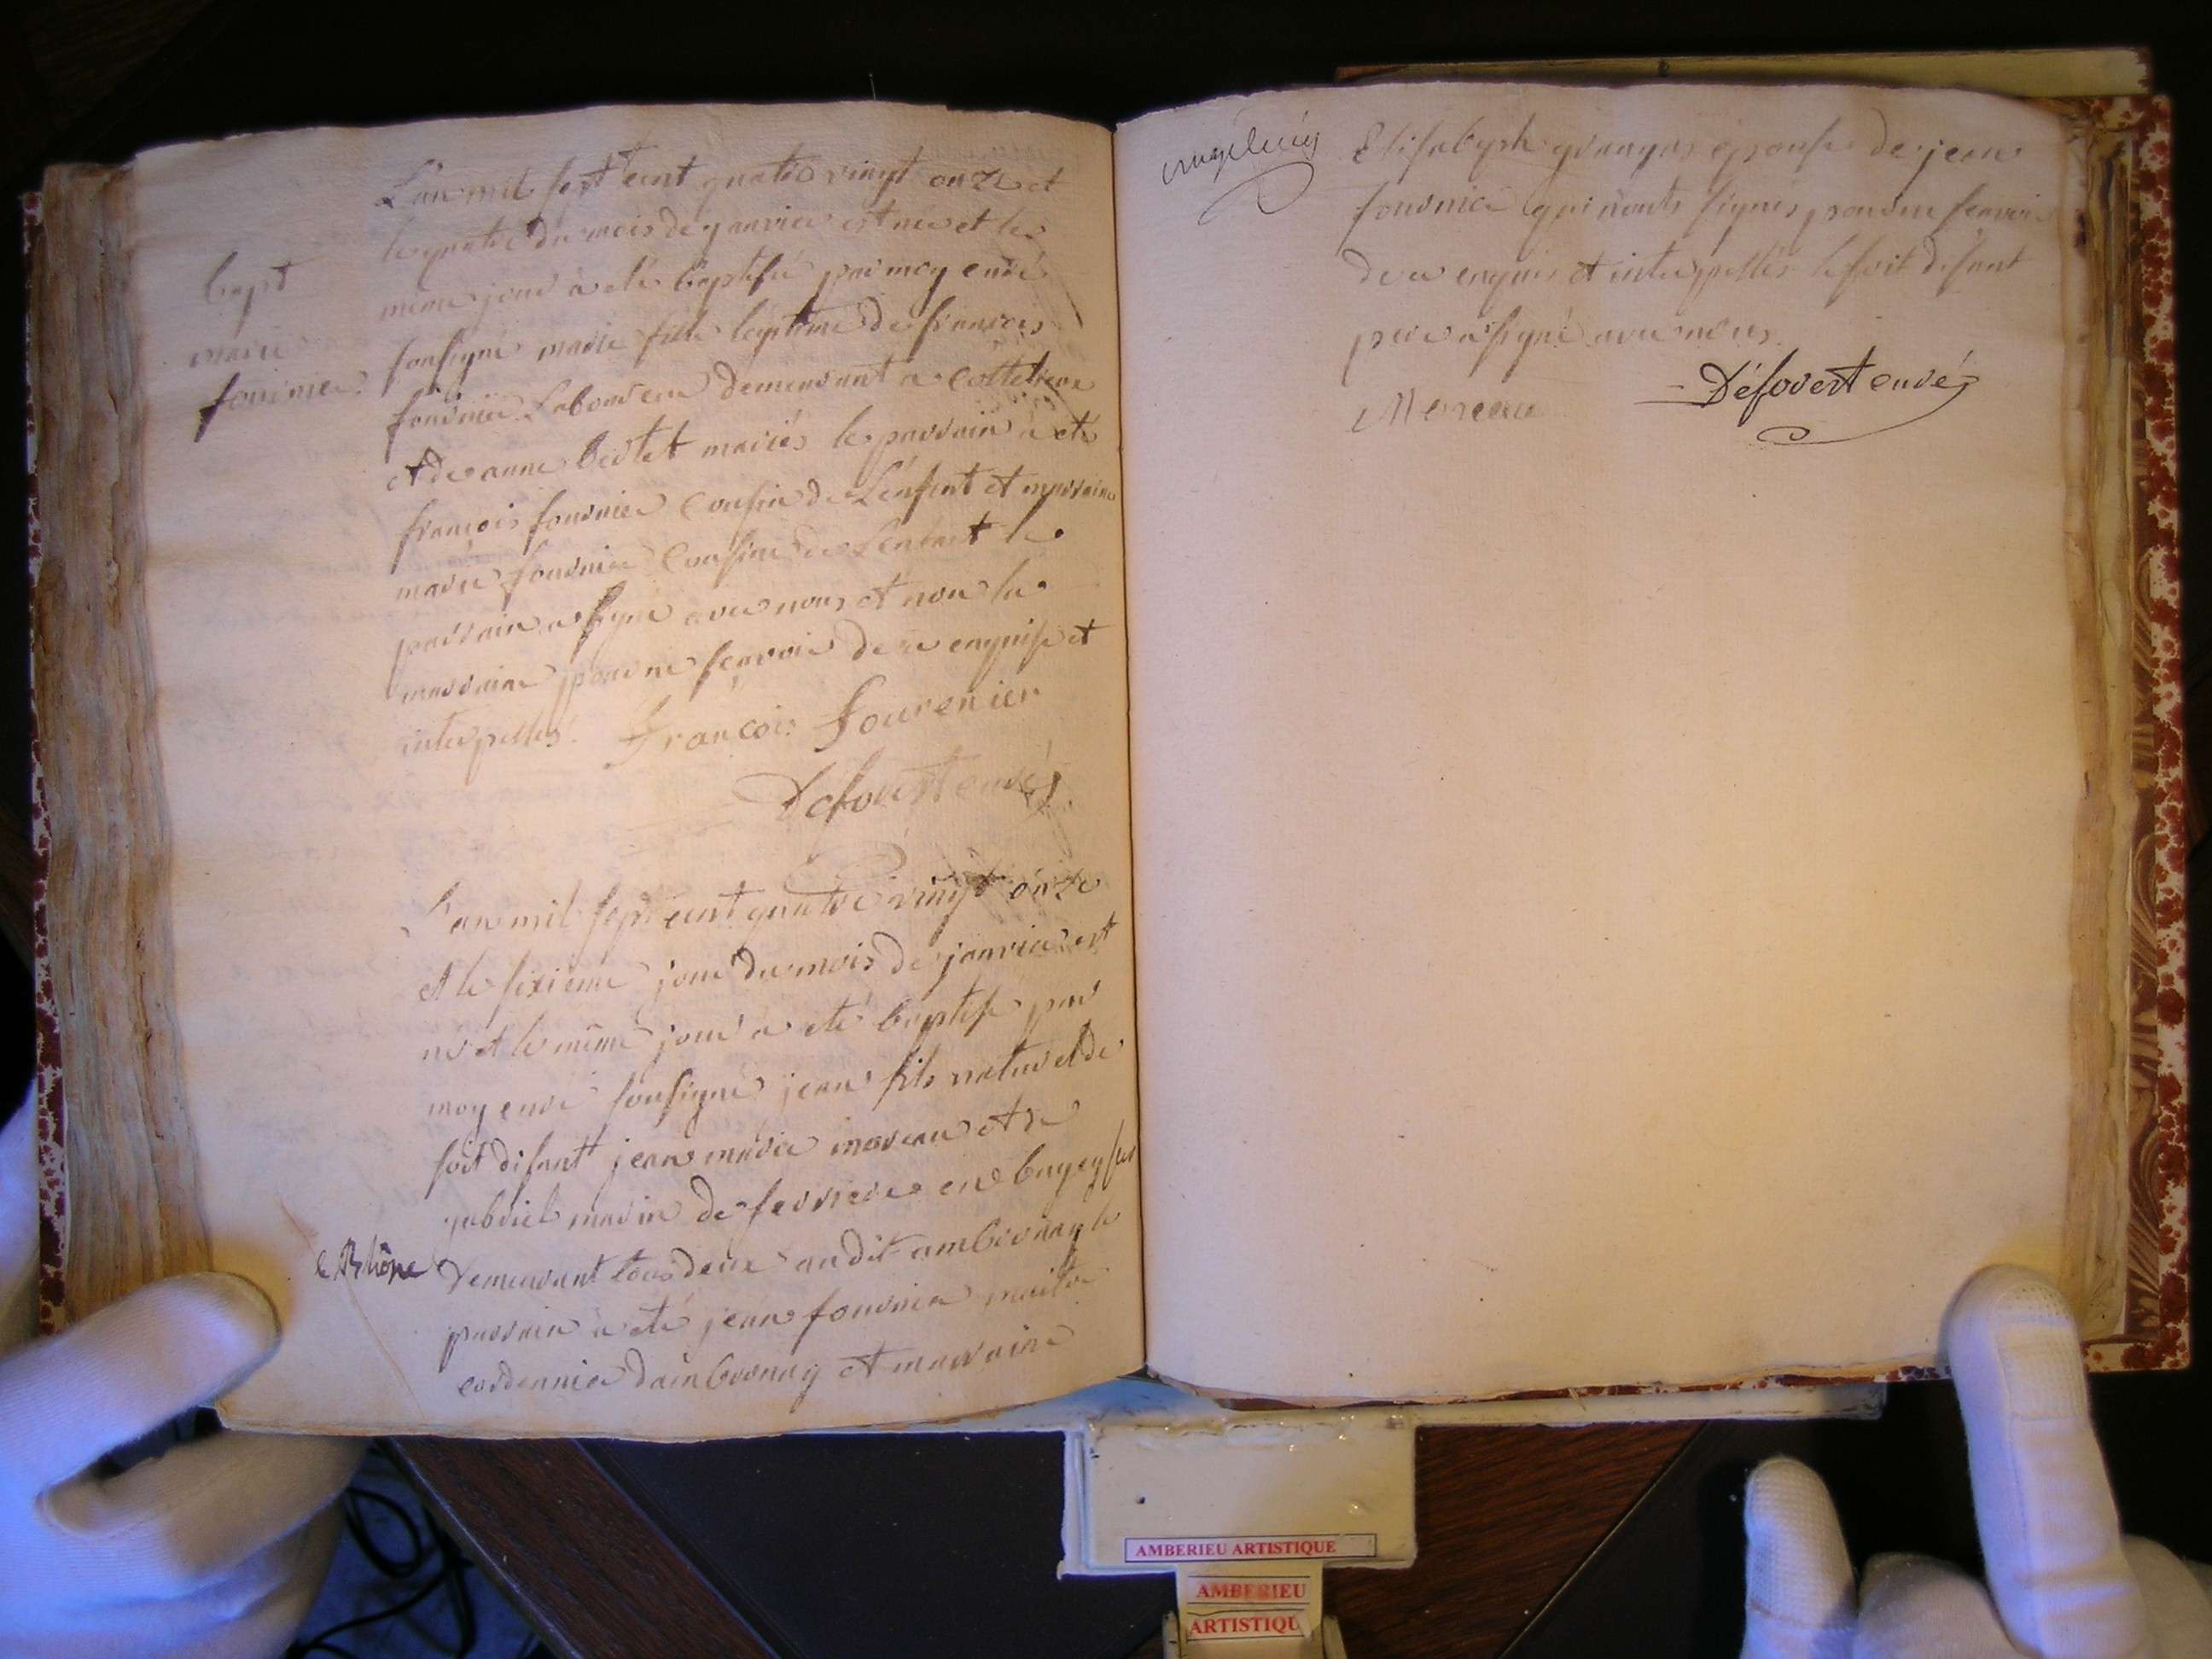 L'an mil sept cent quatre vingt onze et
le quatre du mois de janvier est née et le
meme jour a été baptisée par moy curé
soussigné marie fille legitime de francois
fournier Laboureur demeurant a
et de anne mariés le parrain a été
françois fournier cousin de L'enfant et marraine
marie fournier cousine de L'enfant le
parrain a signé avec nous et non la
marraine pour ne sçavoir de ce enquise et
interpellés. françois fourenier
Défovert curé
bapt
marie
fournier
L'an mil sept cent quatre vingt onze
et le sixième jour du mois de janvier est
né et le même jour a été baptisé par
moy curé soussigné jean fils naturel de
soit disant jean marie moreau et de
gabriel marin de ferriere en bugey sur
le Rhône
Demeurant tous deux audit ambronay le
parrain a été jean fournier maitre
cordonnier d'ambronay et marraine
Elisabeth granges épouse de jean
fournier qui n'ont signés pour ne sçavoir
de ce enquis et interpellés le soit disant
pere a signé avec nous.
Moreau
Défovert curé
AMBERIEU ARTISTIQUE
AMBERIEU
ARTISTIQU